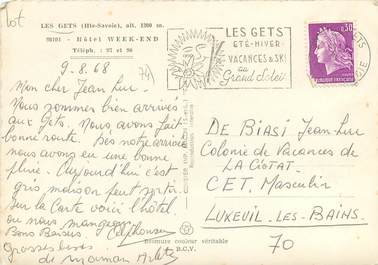 lot
LES GETS (Hte-Savoie), alt. 1200 m.
98101 - Hôtel WEEK-END
Téléph. : 27 et 96
LES GETS
ETE-HIVER
VACANCES & SKI
au
Grand Soleil
0,30
9.8.68
74
Mon cher Jean Luc.
Nous sommes bien arrivés
aux Gets. Nous avons fait
bonne route. Dès notre arrivée
nous avons eu une bonne
pluie. Aujourd'hui c'est
gris mais on peut sortir.
Sur la Carte voici l'hôtel
ou nous mangeons.
Bons Baisers
Grosses bises
de maman Arlette
Bromure couleur véritable
B.C.V.
DE BIASI Jean Luc
Colonie de Vacances de
LA CIOTAT
CET. Masculin
LUXEUIL-LES-BAINS.
70